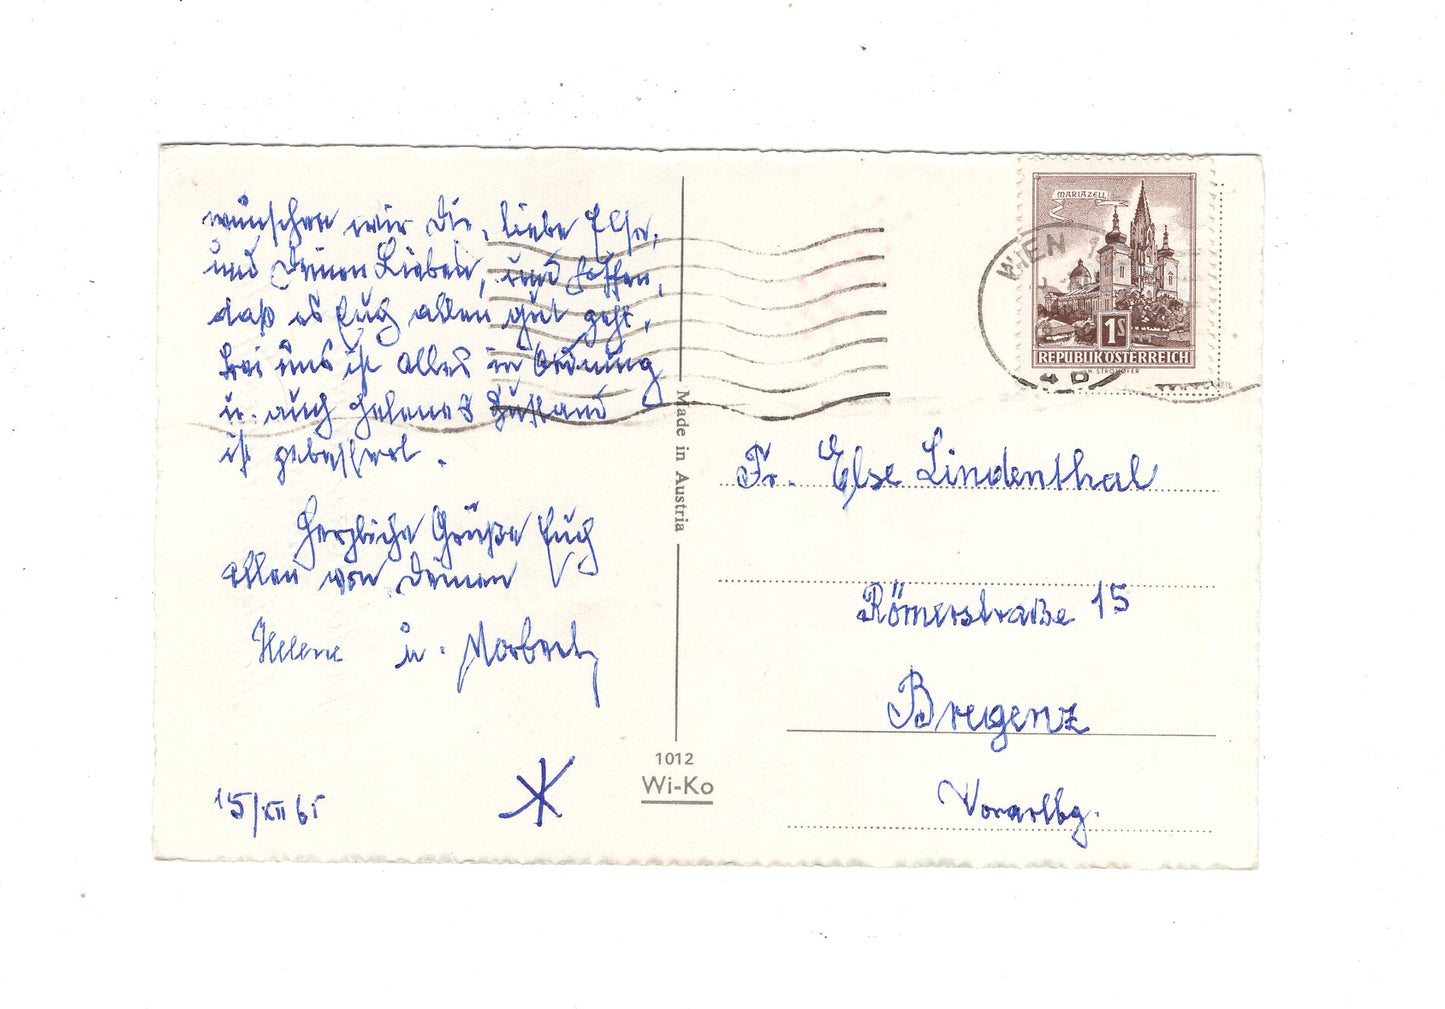 wünschen wir Dir, liebe Else,
und Deinen Lieben, und hoffen,
daß es Euch allen gut geht.
Bei uns ist alles in Ordnung
u. auch Helenes Zustand
ist gebessert.
Herzliche Grüße Euch
allen von Deinen
Helene u.
15/XII 65
Made in Austria
1012
Wi-Ko
MARIAZELL
1S
REPUBLIK ÖSTERREICH
H. STROHOFER
WIEN
Fr. Else Lindenthal
Römerstraße 15
Bregenz
Vorarlbg.